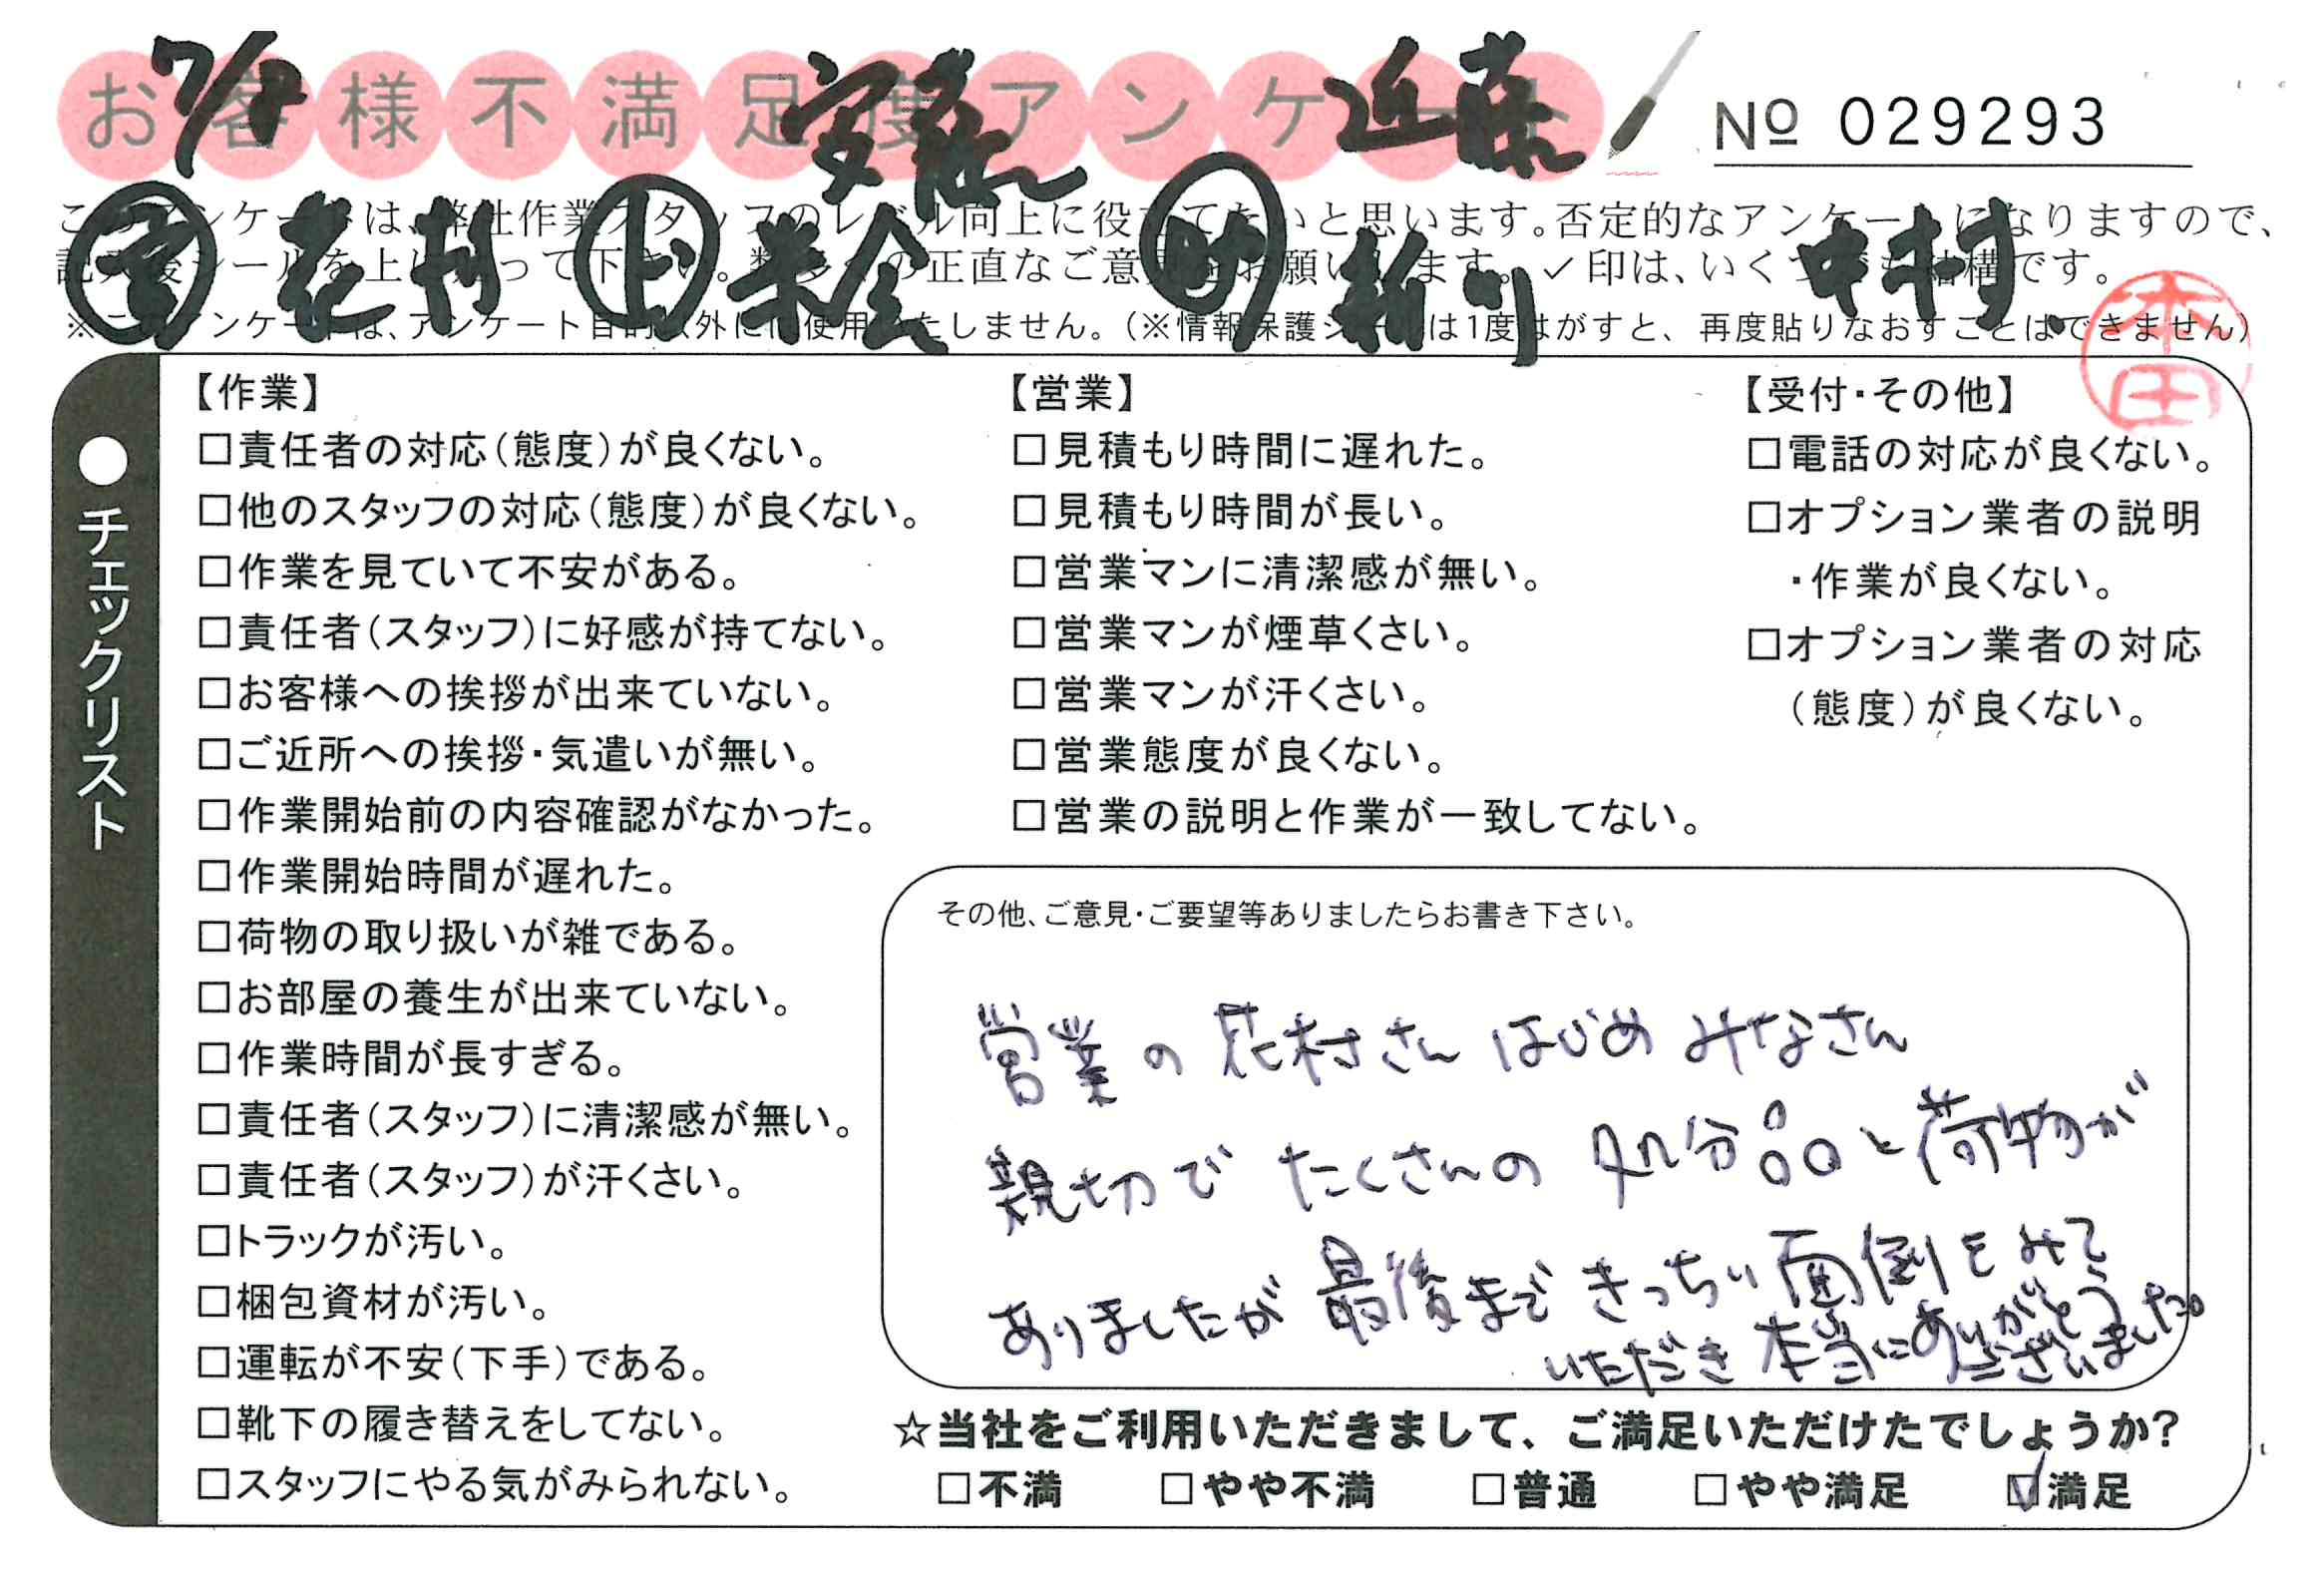 お客様不満足度アンケート
7/8
安藤
近藤
№ 029293
営 花村
上 米倉
助 新川
中村
本田
このアンケートは、弊社作業スタッフのレベル向上に役立てたいと思います。否定的なアンケートになりますので、
記入後シールを上に貼って下さい。数多くの正直なご意見をお願いします。✓印は、いくつでも結構です。
※このアンケートは、アンケート目的以外には使用いたしません。(※情報保護シールは1度はがすと、再度貼りなおすことはできません)
●チェックリスト
【作業】
□責任者の対応(態度)が良くない。
□他のスタッフの対応(態度)が良くない。
□作業を見ていて不安がある。
□責任者(スタッフ)に好感が持てない。
□お客様への挨拶が出来ていない。
□ご近所への挨拶・気遣いが無い。
□作業開始前の内容確認がなかった。
□作業開始時間が遅れた。
□荷物の取り扱いが雑である。
□お部屋の養生が出来ていない。
□作業時間が長すぎる。
□責任者(スタッフ)に清潔感が無い。
□責任者(スタッフ)が汗くさい。
□トラックが汚い。
□梱包資材が汚い。
□運転が不安(下手)である。
□靴下の履き替えをしてない。
□スタッフにやる気がみられない。
【営業】
□見積もり時間に遅れた。
□見積もり時間が長い。
□営業マンに清潔感が無い。
□営業マンが煙草くさい。
□営業マンが汗くさい。
□営業態度が良くない。
□営業の説明と作業が一致してない。
【受付・その他】
□電話の対応が良くない。
□オプション業者の説明
・作業が良くない。
□オプション業者の対応
(態度)が良くない。
その他、ご意見・ご要望等ありましたらお書き下さい。
営業の花村さんはじめみなさん
親切でたくさんの処分品と荷物が
ありましたが最後まできっちり面倒をみて
いただき本当にありがとう
ございました。
☆当社をご利用いただきまして、ご満足いただけたでしょうか?
□不満 □やや不満 □普通 □やや満足 ☑満足